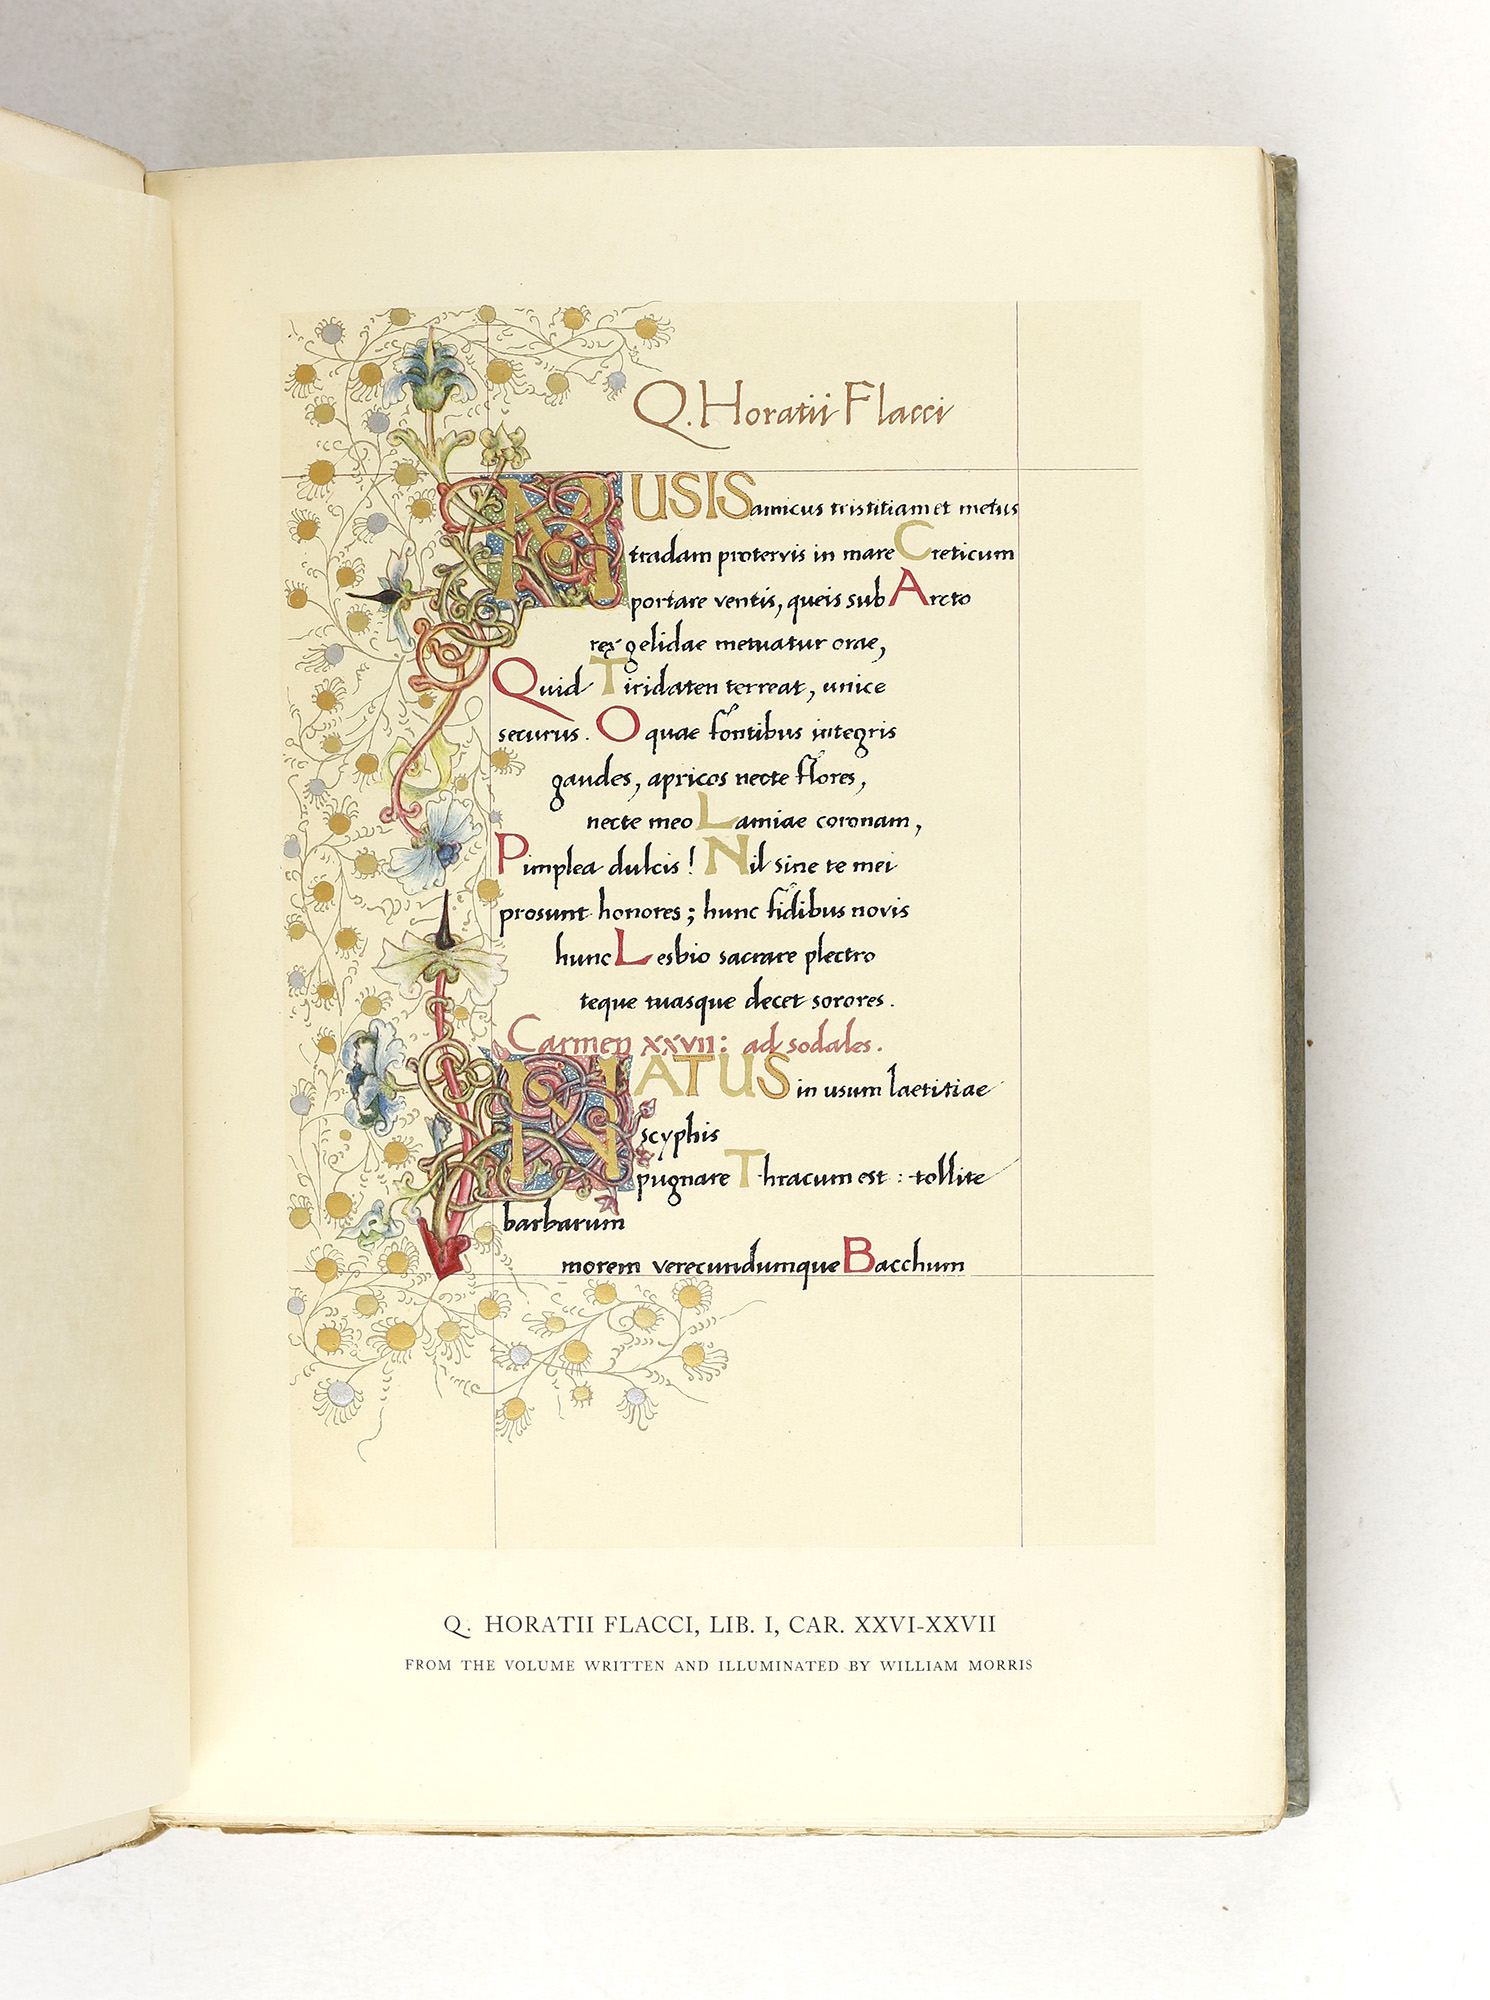 Q. Horatii Flacci
MUSIS amicus tristitiam et metus
tradam protervis in mare Creticum
portare ventis, queis sub Arcto
rex gelidae metuatur orae,
Quid Tiridaten terreat, unice
securus. O quae fontibus integris
gaudes, apricos necte flores,
necte meo Lamiae coronam,
Pimplea dulcis! Nil sine te mei
prosunt honores; hunc fidibus novis
hunc Lesbio sacrare plectro
teque tuasque decet sorores.
Carmen XXVII: ad sodales.
NATUS in usum laetitiae
scyphis
pugnare Thracum est: tollite
barbarum
morem verecundumque Bacchum
Q. HORATII FLACCI, LIB. I, CAR. XXVI-XXVII
FROM THE VOLUME WRITTEN AND ILLUMINATED BY WILLIAM MORRIS